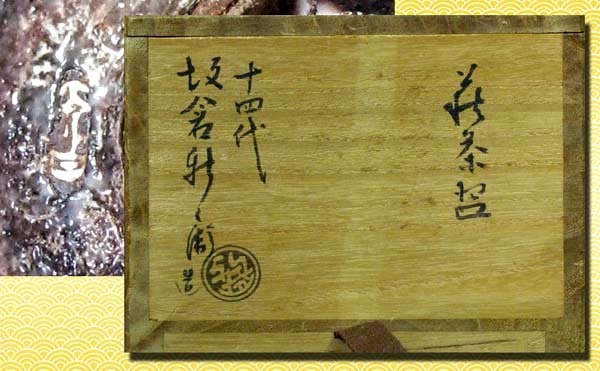 萩茶盌
十四代
坂倉新兵衛造